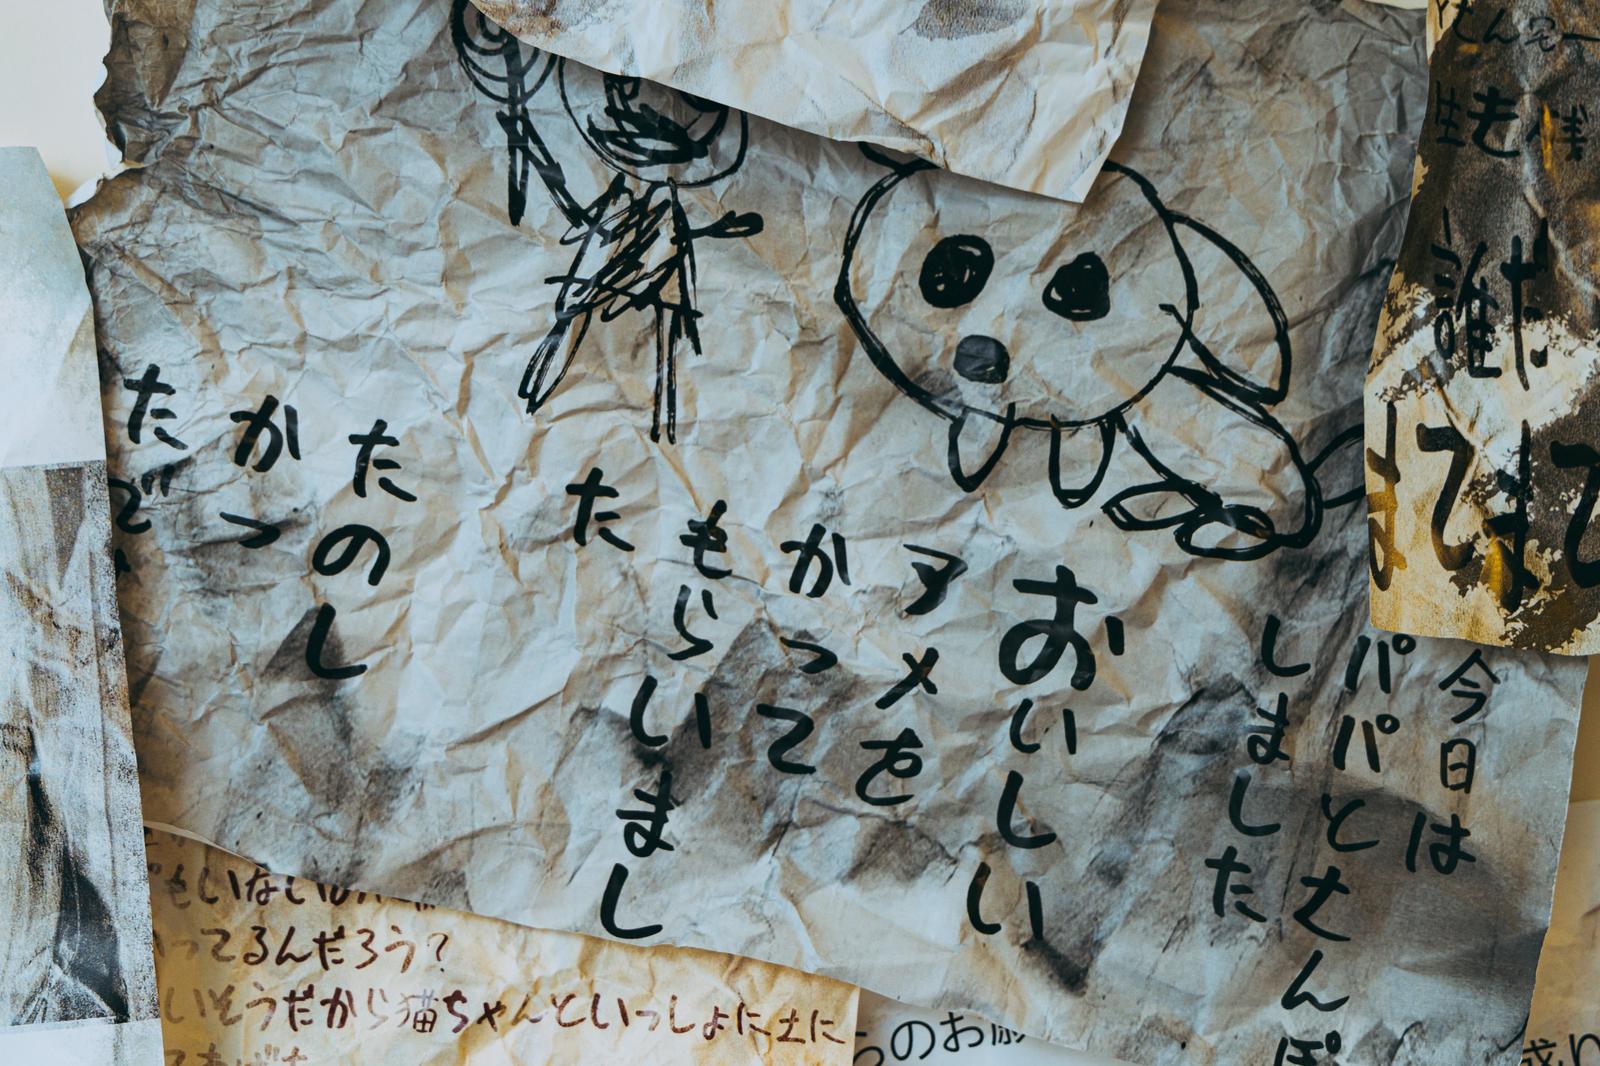 今日は
パパとさんぽ
しました
おいしい
アメを
かって
もらいまし
た
たのし
かっ
たで
誰だ
てまて
もいないの
ってるんだろう?
いそうだから猫ちゃんといっしょに土に
のお願